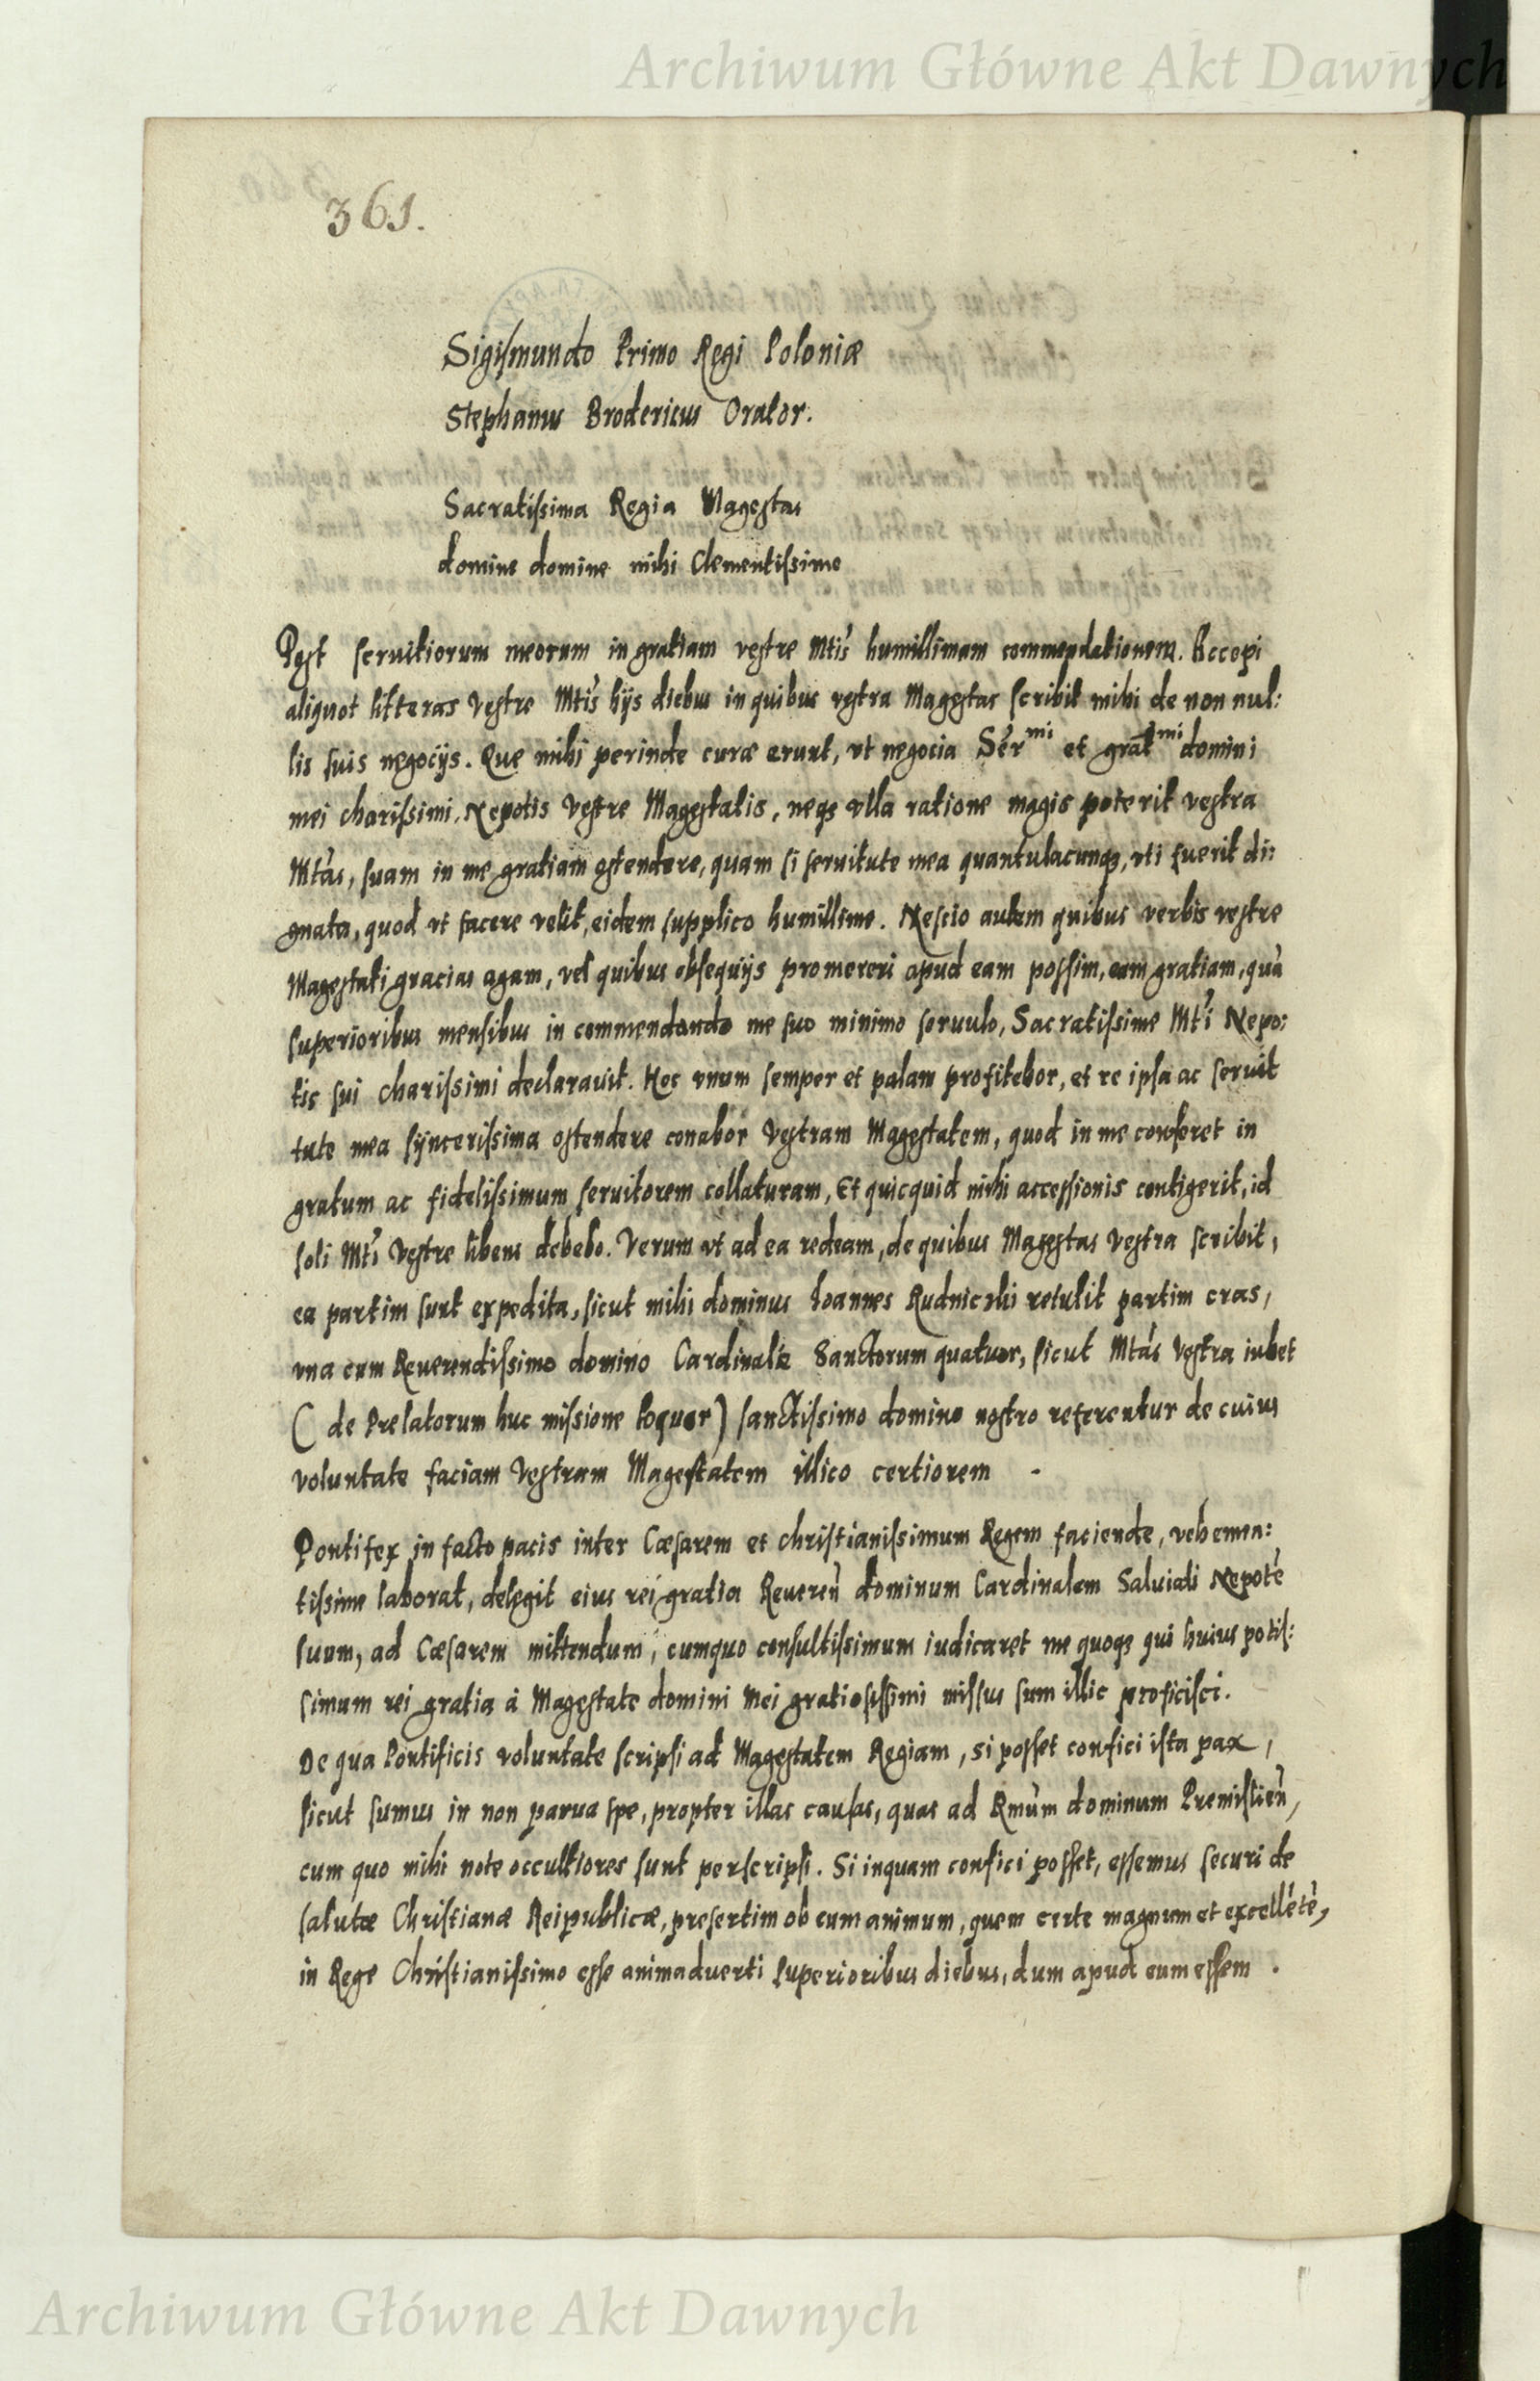 Archiwum Główne Akt Dawnych
361.
Sigismundo Primo Regi Poloniæ
Stephanus Brodericus Orator.
Sacratissima Regia Magestas
domine domine mihi Clementissime
Post seruitiorum meorum in gratiam vestre Mtis humillimam commendationem. Accepi
aliquot litteras Vestre Mtis hijs diebus in quibus vestra Magestas scribit mihi de non nul:
lis suis negocijs. Que mihi perinde curæ erunt, vt negocia Sermi et gratmi domini
mei charissimi, Nepotis Vestre Magestatis, neqȝ vlla ratione magis poterit vestra
Mtas, suam in me gratiam ostendere, quam si seruitute mea quantulacunqȝ, vti fuerit di:
gnata, quod vt facere velit, eidem supplico humillime. Nescio autem quibus verbis vestre
Magestati gracias agam, vel quibus obsequijs promereri apud eam possim, eam gratiam, quà
superioribus mensibus in commendando me suo minimo seruulo, Sacratissime Mti Nepo:
tis sui charissimi declarauit. Hoc vnum semper et palam profitebor, et re ipsa ac seruit
tute mea syncerissima ostendere conabor Vestram Magestatem, quod in me conferet in
gratum ac fidelissimum seruitorem collaturam, Et quicquid mihi accessionis contigerit, id
soli Mti Vestre libens debebo. Verum vt ad ea redeam, de quibus Magestas Vestra scribit,
ea partim sunt expedita, sicut mihi dominus Ioannes Rudniczki retulit partim cras,
vna cum Reuerendissimo domino Cardinale Sanctorum quatuor, sicut Mtas Vestra iubet
( de Prelatorum huc missione loquor) sanctissimo domino nostro referentur de cuius
voluntate faciam Vestram Magestatem illico certiorem -
Pontifex in facto pacis inter Cæsarem et christianissimum Regem faciende, vehemen:
tissime laborat, delegit eius rei gratia Reueren̄ dominum Cardinalem Saluiati Nepotè
suum, ad Cæsarem mittendum, cumquo consultissimum iudicaret me quoqȝ qui huius potis:
simum rei gratia à Magestate domini Mei gratiosissimi missus sum illic proficisci.
De qua Pontificis voluntate scripsi ad Magestatem Regiam, si posset confici ista pax,
sicut sumus in non parua spe, propter illas causas, quas ad Rmum dominum Premislien̄,
cum quo mihi note occultiores sunt perscripsi. Si inquam confici posset, essemus securi de
salute Christianæ Reipublicæ, presertim ob eum animum, quem certe magnum et excellètè,
in Rege Christianissimo esse animaduerti superioribus diebus, dum apud eum essem .
Archiwum Główne Akt Dawnych